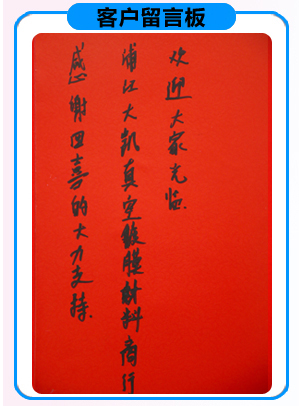 客户留言板
欢迎大家光临.
浦江大凯真空镀膜材料商行
感谢四喜的大力支持.